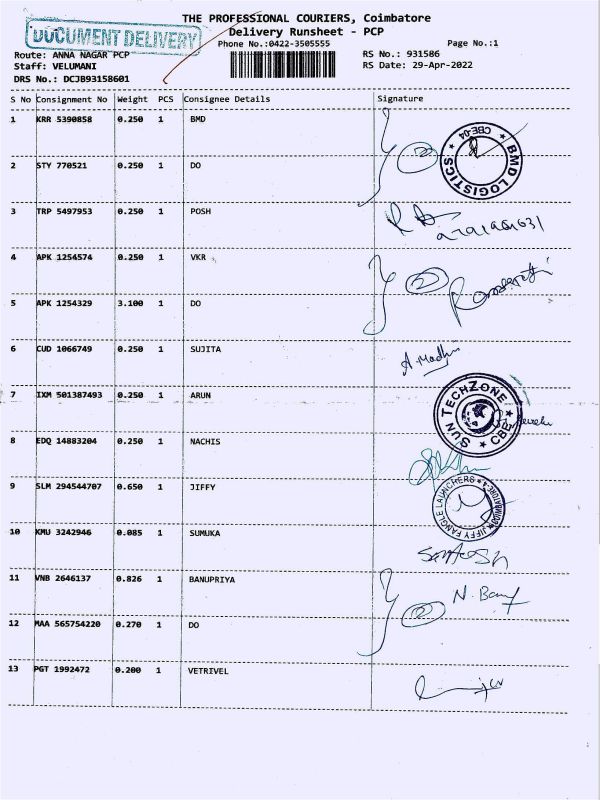 THE PROFESSIONAL COURIERS, Coimbatore
DOCUMENT DELIVERY
Delivery Runsheet - PCP
Phone No.:0422-3505555 Page No.:1
Route: ANNA NAGAR PCP RS No.: 931586
Staff: VELUMANI RS Date: 29-Apr-2022
DRS No.: DCJB93158601
S No Consignment No Weight PCS Consignee Details Signature
1 KRR 5390858 0.250 1 BMD
BMD LOGISTICS * CBE-04 *
2 STY 770521 0.250 1 DO
3 TRP 5497953 0.250 1 POSH
4 APK 1254574 0.250 1 VKR
5 APK 1254329 3.100 1 DO
6 CUD 1066749 0.250 1 SUJITA
A. Madhu
7 IXM 501387493 0.250 1 ARUN
SUN TECHZONE * CBE *
8 EDQ 14883204 0.250 1 NACHIS
9 SLM 294544707 0.650 1 JIFFY
JIFFY FANGLE LAUNCHERS * COIMBATORE-4 *
10 KMU 3242946 0.085 1 SUMUKA
Santosh
11 VNB 2646137 0.826 1 BANUPRIYA
N. Banu
12 MAA 565754220 0.270 1 DO
13 PGT 1992472 0.200 1 VETRIVEL